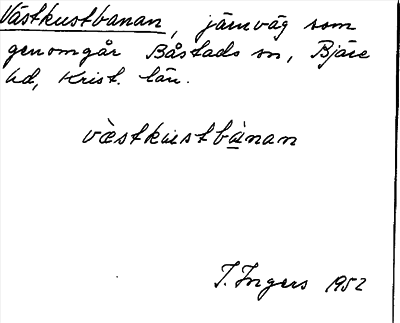 Västkustbanan, järnväg som
genomgår Båstads sn, Bjäre
hd, Krist. län.
vä̀stkustbànan
I. Ingers 1952